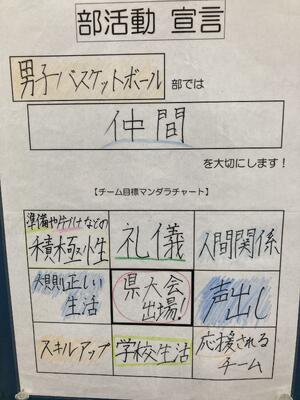 部活動 宣言
男子バスケットボール 部では
仲間
を大切にします!
【チーム目標マンダラチャート】
準備や片づけなどの
積極性
礼儀
人間関係
規則正しい
生活
県大会
出場!
声出し
スキルアップ
学校生活
応援される
チーム